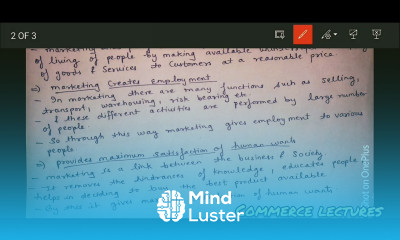 2 OF 3
of living of people by making available
of goods & Services to Customers at a reasonable price
→ marketing Creates Employment
- In marketing there are many functions such as selling,
transport, warehousing, risk bearing etc.
- these different activities are performed by large number
of people
- So through this way marketing gives employment to various
people
→ provides maximum satisfaction of human wants
- marketing is a link between the business & Society
- It removes the hindrances of knowledge, educates people,
helps in deciding to buy the best product available
of human wants
Shot on OnePlus
Mind
Luster
COMMERCE LECTURES